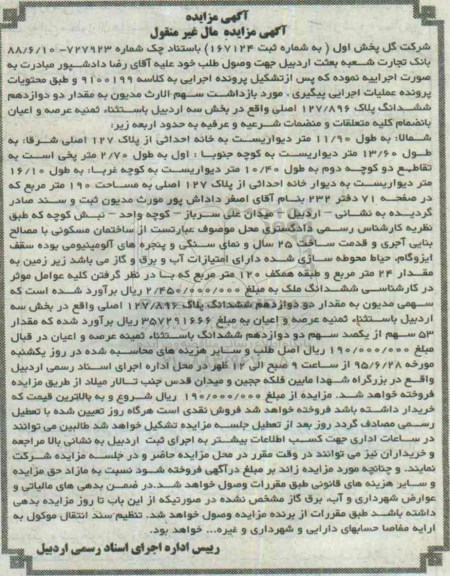 آگهی مزایده
آگهی مزایده مال غیر منقول
شرکت گل پخش اول ( به شماره ثبت ۱۶۷۱۲۴) باستناد چک شماره ۷۲۷۹۲۳- ۸۸/۶/۱۰
بانک تجارت شعبه بعثت اردبیل جهت وصول طلب خود علیه آقای رضا دادشپور مبادرت به
صورت اجراییه نموده که پس ازتشکیل پرونده اجرایی به کلاسه ۹۱۰۰۱۹۹ و طبق محتویات
پرونده عملیات اجرایی پیگیری . مورد بازداشت سهم الارث مدیون به مقدار دو دوازدهم
ششدانگ پلاک ۱۲۷/۸۹۶ اصلی واقع در بخش سه اردبیل باستثناء ثمنیه عرصه و اعیان
بانضمام کلیه متعلقات و منضمات شرعیه و عرفیه به حدود اربعه زیر:
شمالا: به طول ۱۱/۹۰ متر دیواریست به خانه احداثی از پلاک ۱۲۷ اصلی شرقا: به
طول ۱۳/۶۰ متر دیواریست به کوچه جنوبا : اول به طول ۲/۷۰ متر پخی است به
تقاطیع دو کوچه دوم به طول ۱۰/۴۰ متر دیواریست به کوچه غربا: به طول ۱۶/۱۰
متر دیواریست به دیوار خانه احداثی از پلاک ۱۲۷ اصلی به مساحت ۱۹۰ متر مربع که
در صفحه ۷۱ دفتر ۲۳۲ بنام آقای اصغر داداش پور مورث مدیون ثبت و سند صادر
گردیده به نشانی – اردبیل – میدان علی سرباز – کوچه واحد – نبش کوچه که طبق
نظریه کارشناس رسمی دادگستری محل موصوف عبارتست از ساختمان مسکونی با مصالح
بنایی آجری و قدمت ساخت ۲۵ سال و نمای سنگی و پنجره های آلومینیومی بوده سقف
ایزوگام، حیاط محوطه سازی شده دارای امتیازات آب و برق و گاز می باشد زیر زمین به
مقدار ۲۴ متر مربع و طبقه همکف ۱۲۰ متر مربع که با در نظر گرفتن کلیه عوامل موثر
در کارشناسی ششدانگ ملک به مبلغ ۲/۴۵۰/۰۰۰/۰۰۰ ریال برآورد شده است که
سهمی مدیون به مقدار دو دوازدهم ششدانگ پلاک ۱۲۷/۸۹۶ اصلی واقع در بخش سه
اردبیل باستثناء ثمنیه عرصه و اعیان به مبلغ ۳۵۷۲۹۱۶۶۶ ریال برآورد شده که مقدار
۵۳ سهم از یکصد سهم دو دوازدهم ششدانگ باستثناء ثمنیه عرصه و اعیان در قبال
مبلغ ۱۹۰/۰۰۰/۰۰۰ ریال اصل طلب و سایر هزینه های محاسبه شده در روز یکشنبه
مورخه ۹۵/۶/۲۸ از ساعت ۹ صبح الی ۱۲ ظهر در محل اداره اجرای اسناد رسمی اردبیل
واقع در بزرگراه شهدا مابین فلکه ججین و میدان قدس جنب تالار میلاد از طریق مزایده
فروخته خواهد شد. مزایده از مبلغ ۱۹۰/۰۰۰/۰۰۰ ریال شروع و به بالاترین قیمت که
خریدار داشته باشد فروخته خواهد شد فروش نقدی است هرگاه روز تعیین شده با تعطیل
رسمی مصادف گردد روز بعد از تعطیل جلسه مزایده تشکیل خواهد شد طالبین می توانند
در ساعات اداری جهت کسب اطلاعات بیشتر به اجرای ثبت اردبیل به نشانی بالا مراجعه
و خریداران نیز می توانند در وقت مقرر در محل مزایده حاضر و در جلسه مزایده شرکت
نمایند. و چنانچه مورد مزایده زائد بر مبلغ درآگهی فروخته شود نسبت به مازاد حق مزایده
و سایر هزینه های قانونی طبق مقررات وصول خواهد شد.در ضمن بدهی های مالیاتی و
عوارض شهرداری و آب، برق گاز مشخص نشده در صورتیکه از این باب تا روز مزایده بدهی
داشته باشد طبق مقررات از برنده مزایده وصول خواهد شد. تنظیم سند انتقال موکول به
ارایه مفاصا حسابهای دارایی و شهرداری و غیره... خواهد بود.
رییس اداره اجرای اسناد رسمی اردبیل